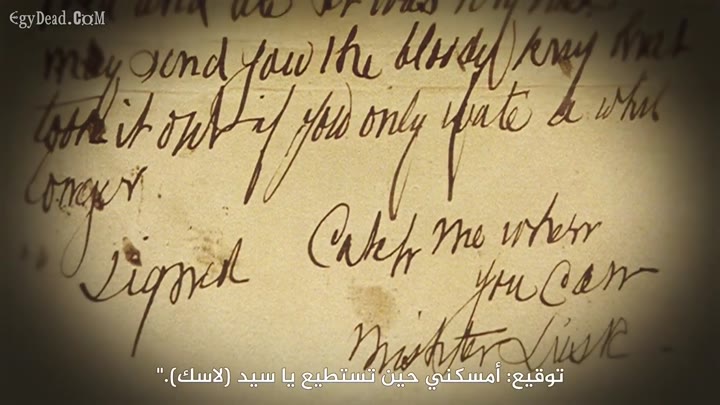 EgyDead.CoM
and ate it was very
may send you the bloody knif that
took it out if you only wate a whil
longer
signed Catch me when
you Can
Mishter Lusk
توقيع: أمسكني حين تستطيع يا سيد (لاسك)."